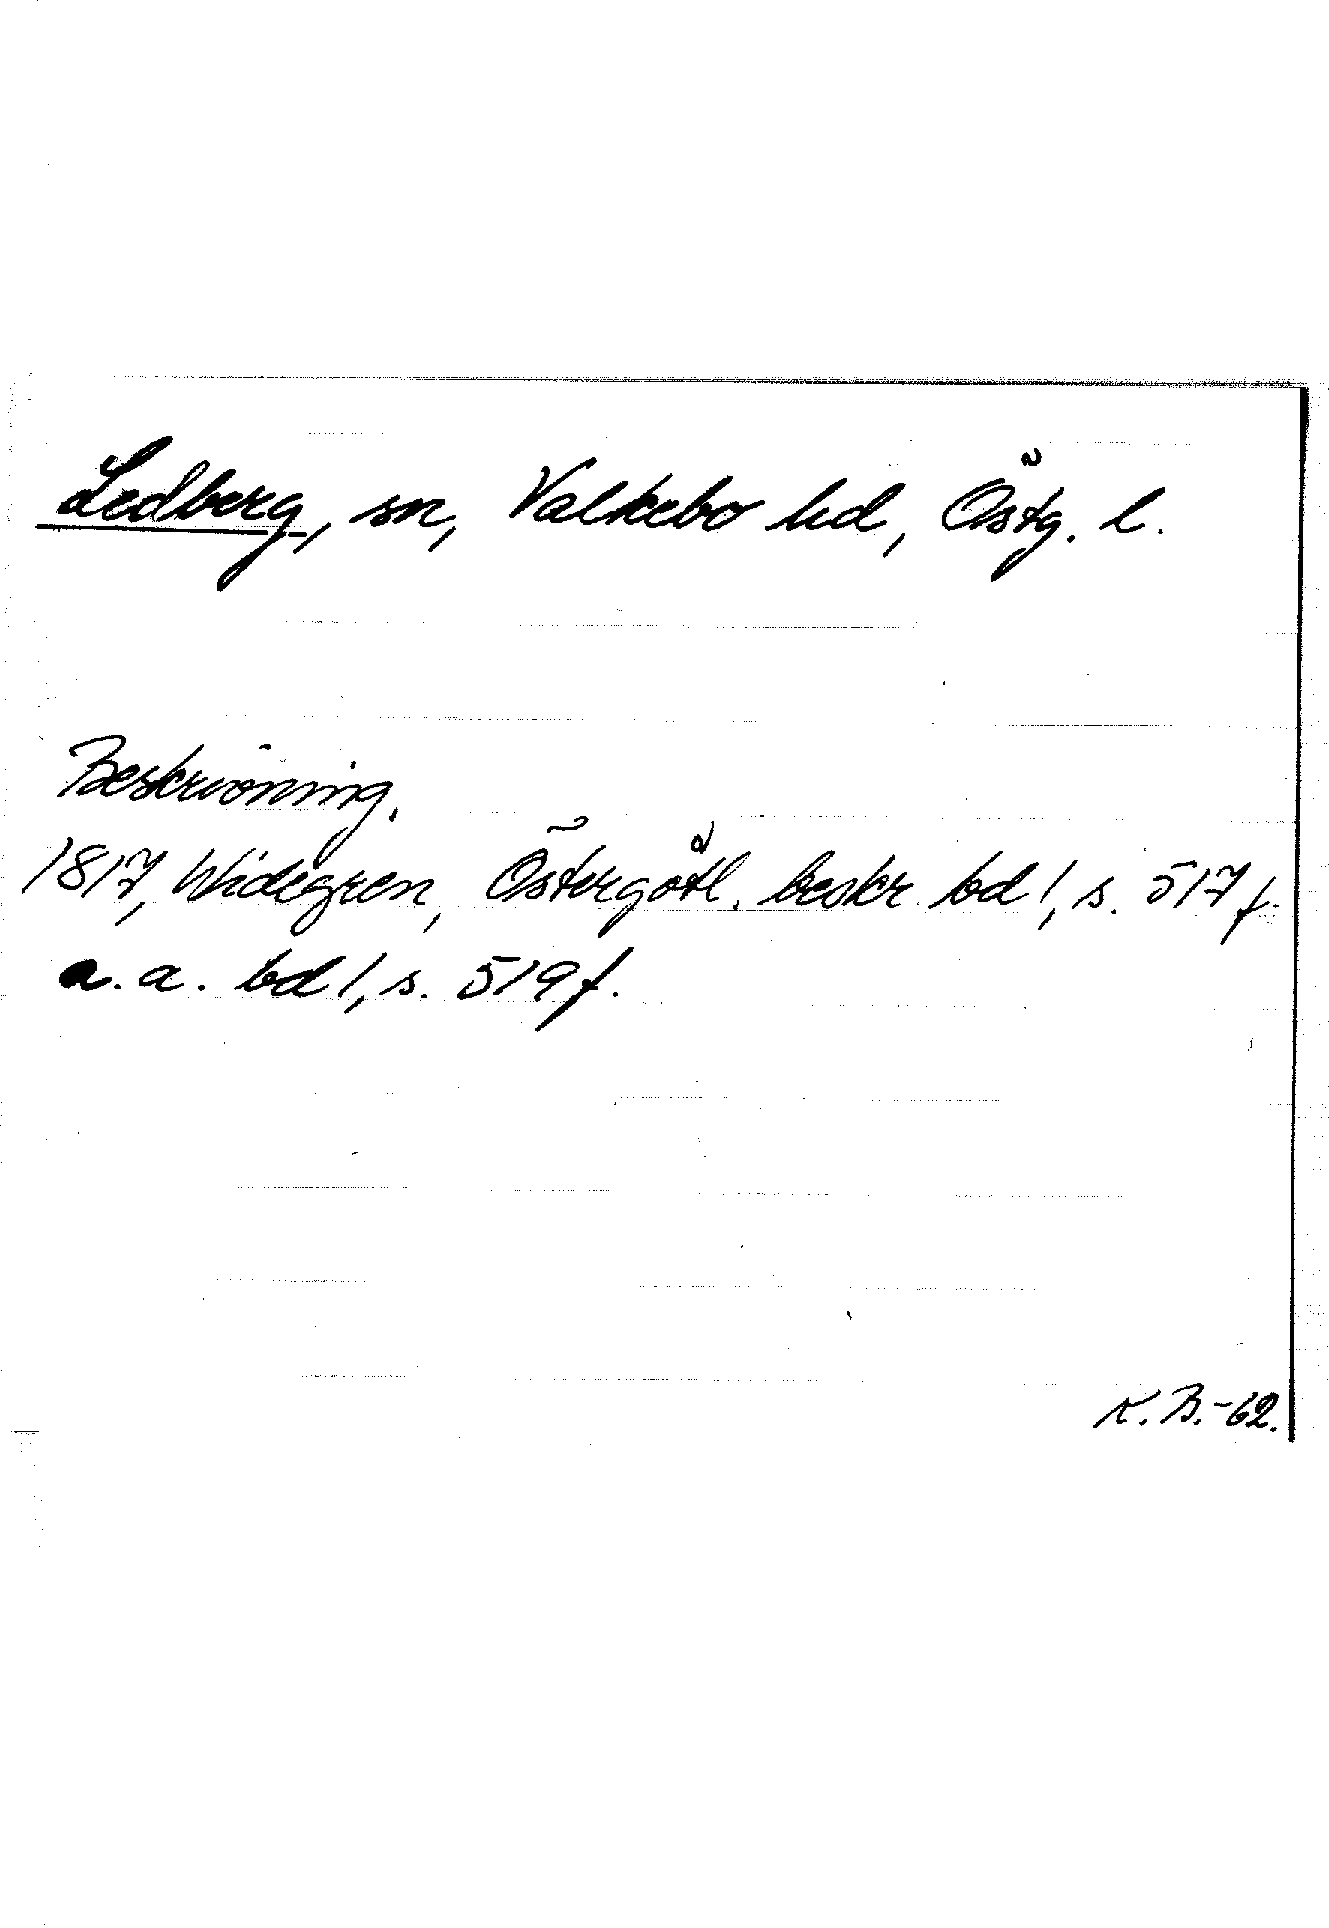 Ledberg, sn, Valkebo hd, Östg. l.
Beskrivning.
1817, Widegren, Östergötl. beskr. bd 1, s. 517 f.
a. a. bd 1, s. 519 f.
K. B. -62.